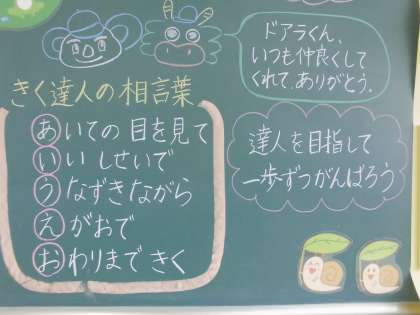 ドアラくん、
いつも仲良くして
くれて、ありがとう。
きく達人の相言葉
あいての目を見て
いいしせいで
うなずきながら
えがおで
おわりまできく
達人を目指して
一歩ずつがんばろう